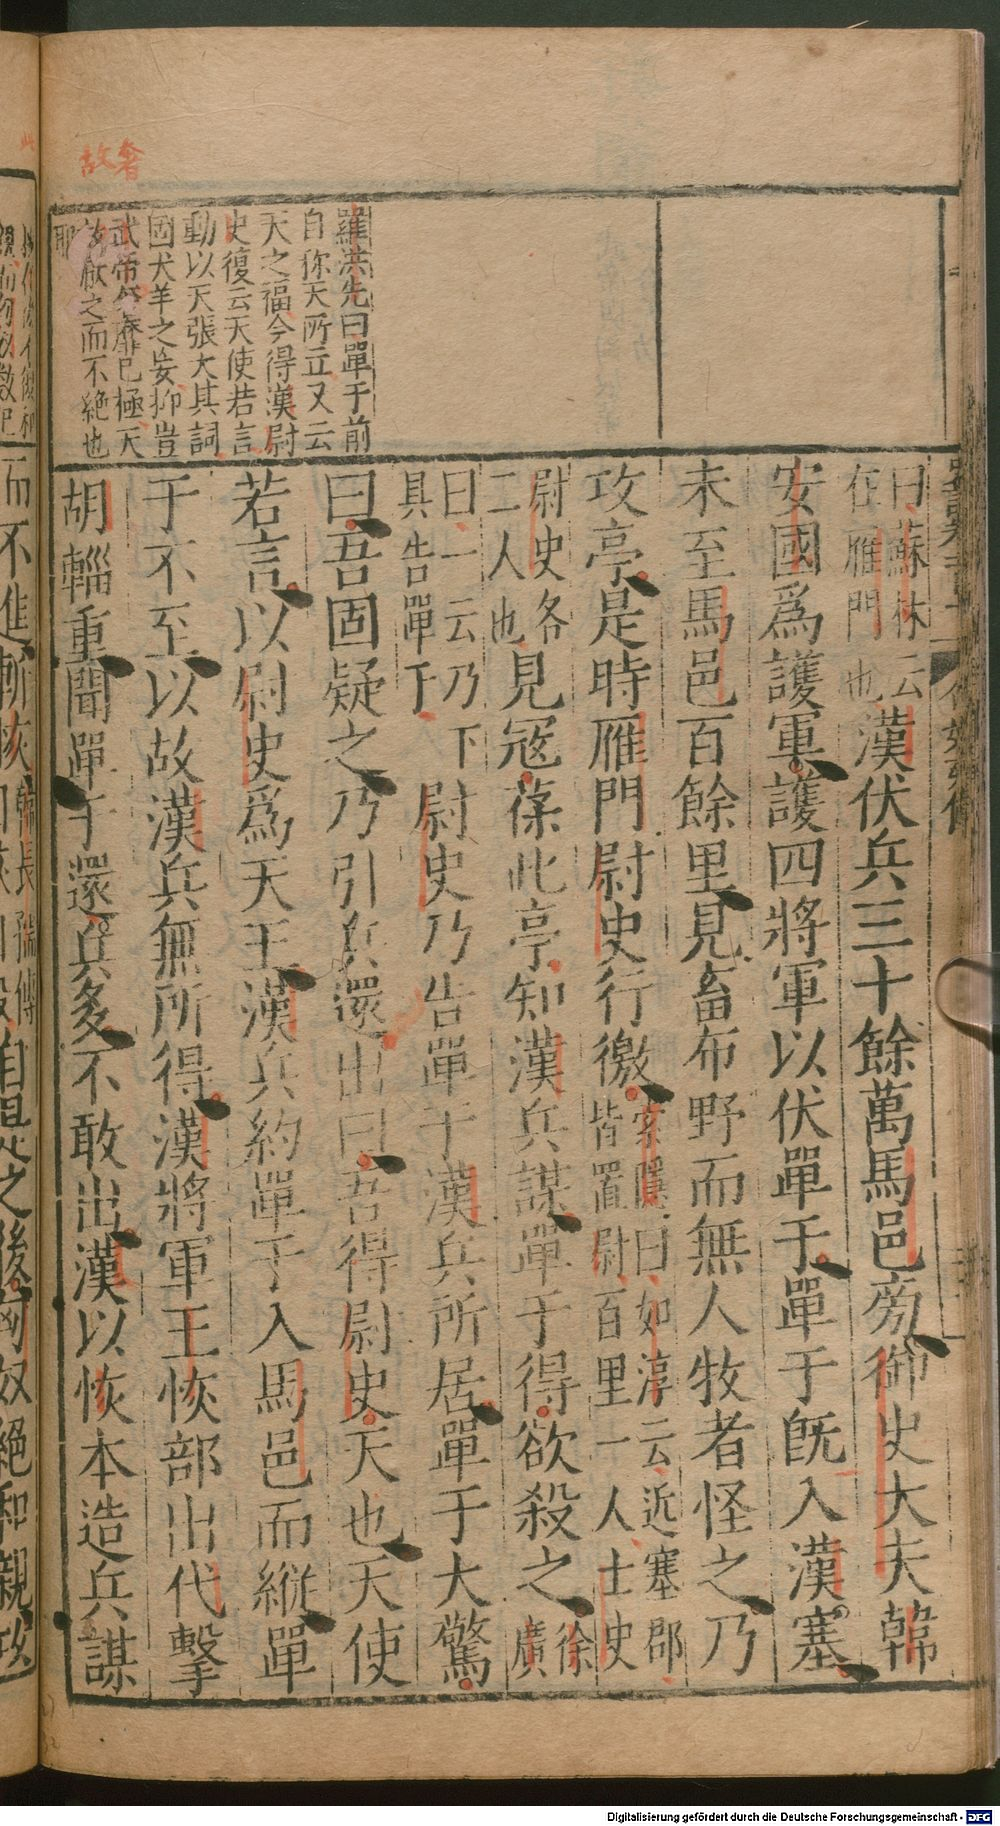 奢故
羅洪先曰單于前
自称天所立又云
天之福今得漢尉
史復云天使若言
動以天張大其詞
國犬羊之妄抑豈
武帝
之而不絶也
耶
曰蘇林云
在雁門也
漢伏兵三十餘萬馬邑旁御史大夫韓
安國爲護軍護四將軍以伏單于單于既入漢塞
未至馬邑百餘里見畜布野而無人牧者怪之乃
攻亭是時雁門尉史行徼
索隱曰如淳云近塞郡
皆置尉百里一人士史
尉史各
二人也
見寇葆此亭知漢兵謀單于得欲殺之
徐
廣
曰一云乃下
具告單于
尉史乃告單于漢兵所居單于大驚
曰吾固疑之乃引兵還出曰吾得尉史天也天使
若言以尉史爲天王漢兵約單于入馬邑而縱單
于不至以故漢兵無所得漢將軍王恢部出代擊
胡輜重聞單于還兵多不敢出漢以恢本造兵謀
而不進斬恢
韓長孺傳
自是之後匈奴絶和親攻
Digitalisierung gefördert durch die Deutsche Forschungsgemeinschaft - DFG